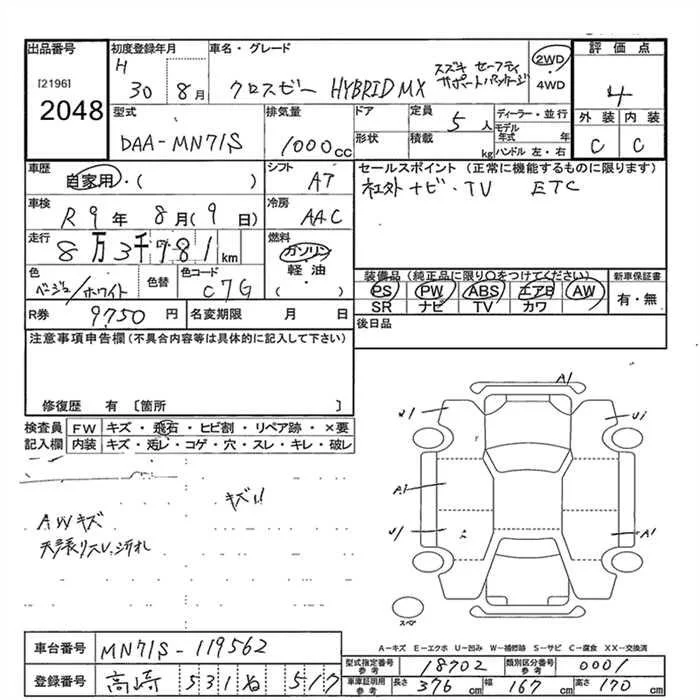 出品番号
[2196]
2048
初度登録年月
H 30 8月
車名・グレード
クロスビー HYBRID MX スズキ セーフティ サポートパッケージ
2WD・4WD
評価点
4
外装 内装
C C
型式
DAA-MN71S
排気量
1000cc
ドア
形状
定員
5人
積載
kg
ディーラー・並行
モデル年式 年
ハンドル 左・右
車歴
自家用・( )
シフト
AT
セールスポイント (正常に機能するものに限ります)
社外ナビ・TV ETC
車検
R 9年 8月(9日)
冷房
AAC
走行
8万3千981km
燃料
ガソリン・軽油・( )
色
ベージュ/ホワイト
色替
色コード
C7G
装備品(純正品に限り○をつけてください)
PS PW ABS エアB AW
SR ナビ TV カワ
新車保証書
有・無
R券 9750円
名変期限 月 日
後日品
注意事項申告欄(不具合内容等は具体的に記入して下さい)
修復歴 有 〔箇所 〕
検査員 FW キズ・飛石・ヒビ割・リペア跡・×要
記入欄 内装 キズ・汚レ・コゲ・穴・スレ・キレ・破レ
キズ
AWキズ
天張リスレ、汚れ
A1
U1
U1
A1
U1
A1
スペア
A-キズ E-エクボ U-凹み W-補修跡 S-サビ C-腐食 XX-交換済
車台番号 MN71S-119562
登録番号 高崎 531 ね 517
型式指定番号 参考 18702
類別区分番号 参考 0001
車庫証明用 参考 長さ 376cm 幅 167cm 高さ 170cm